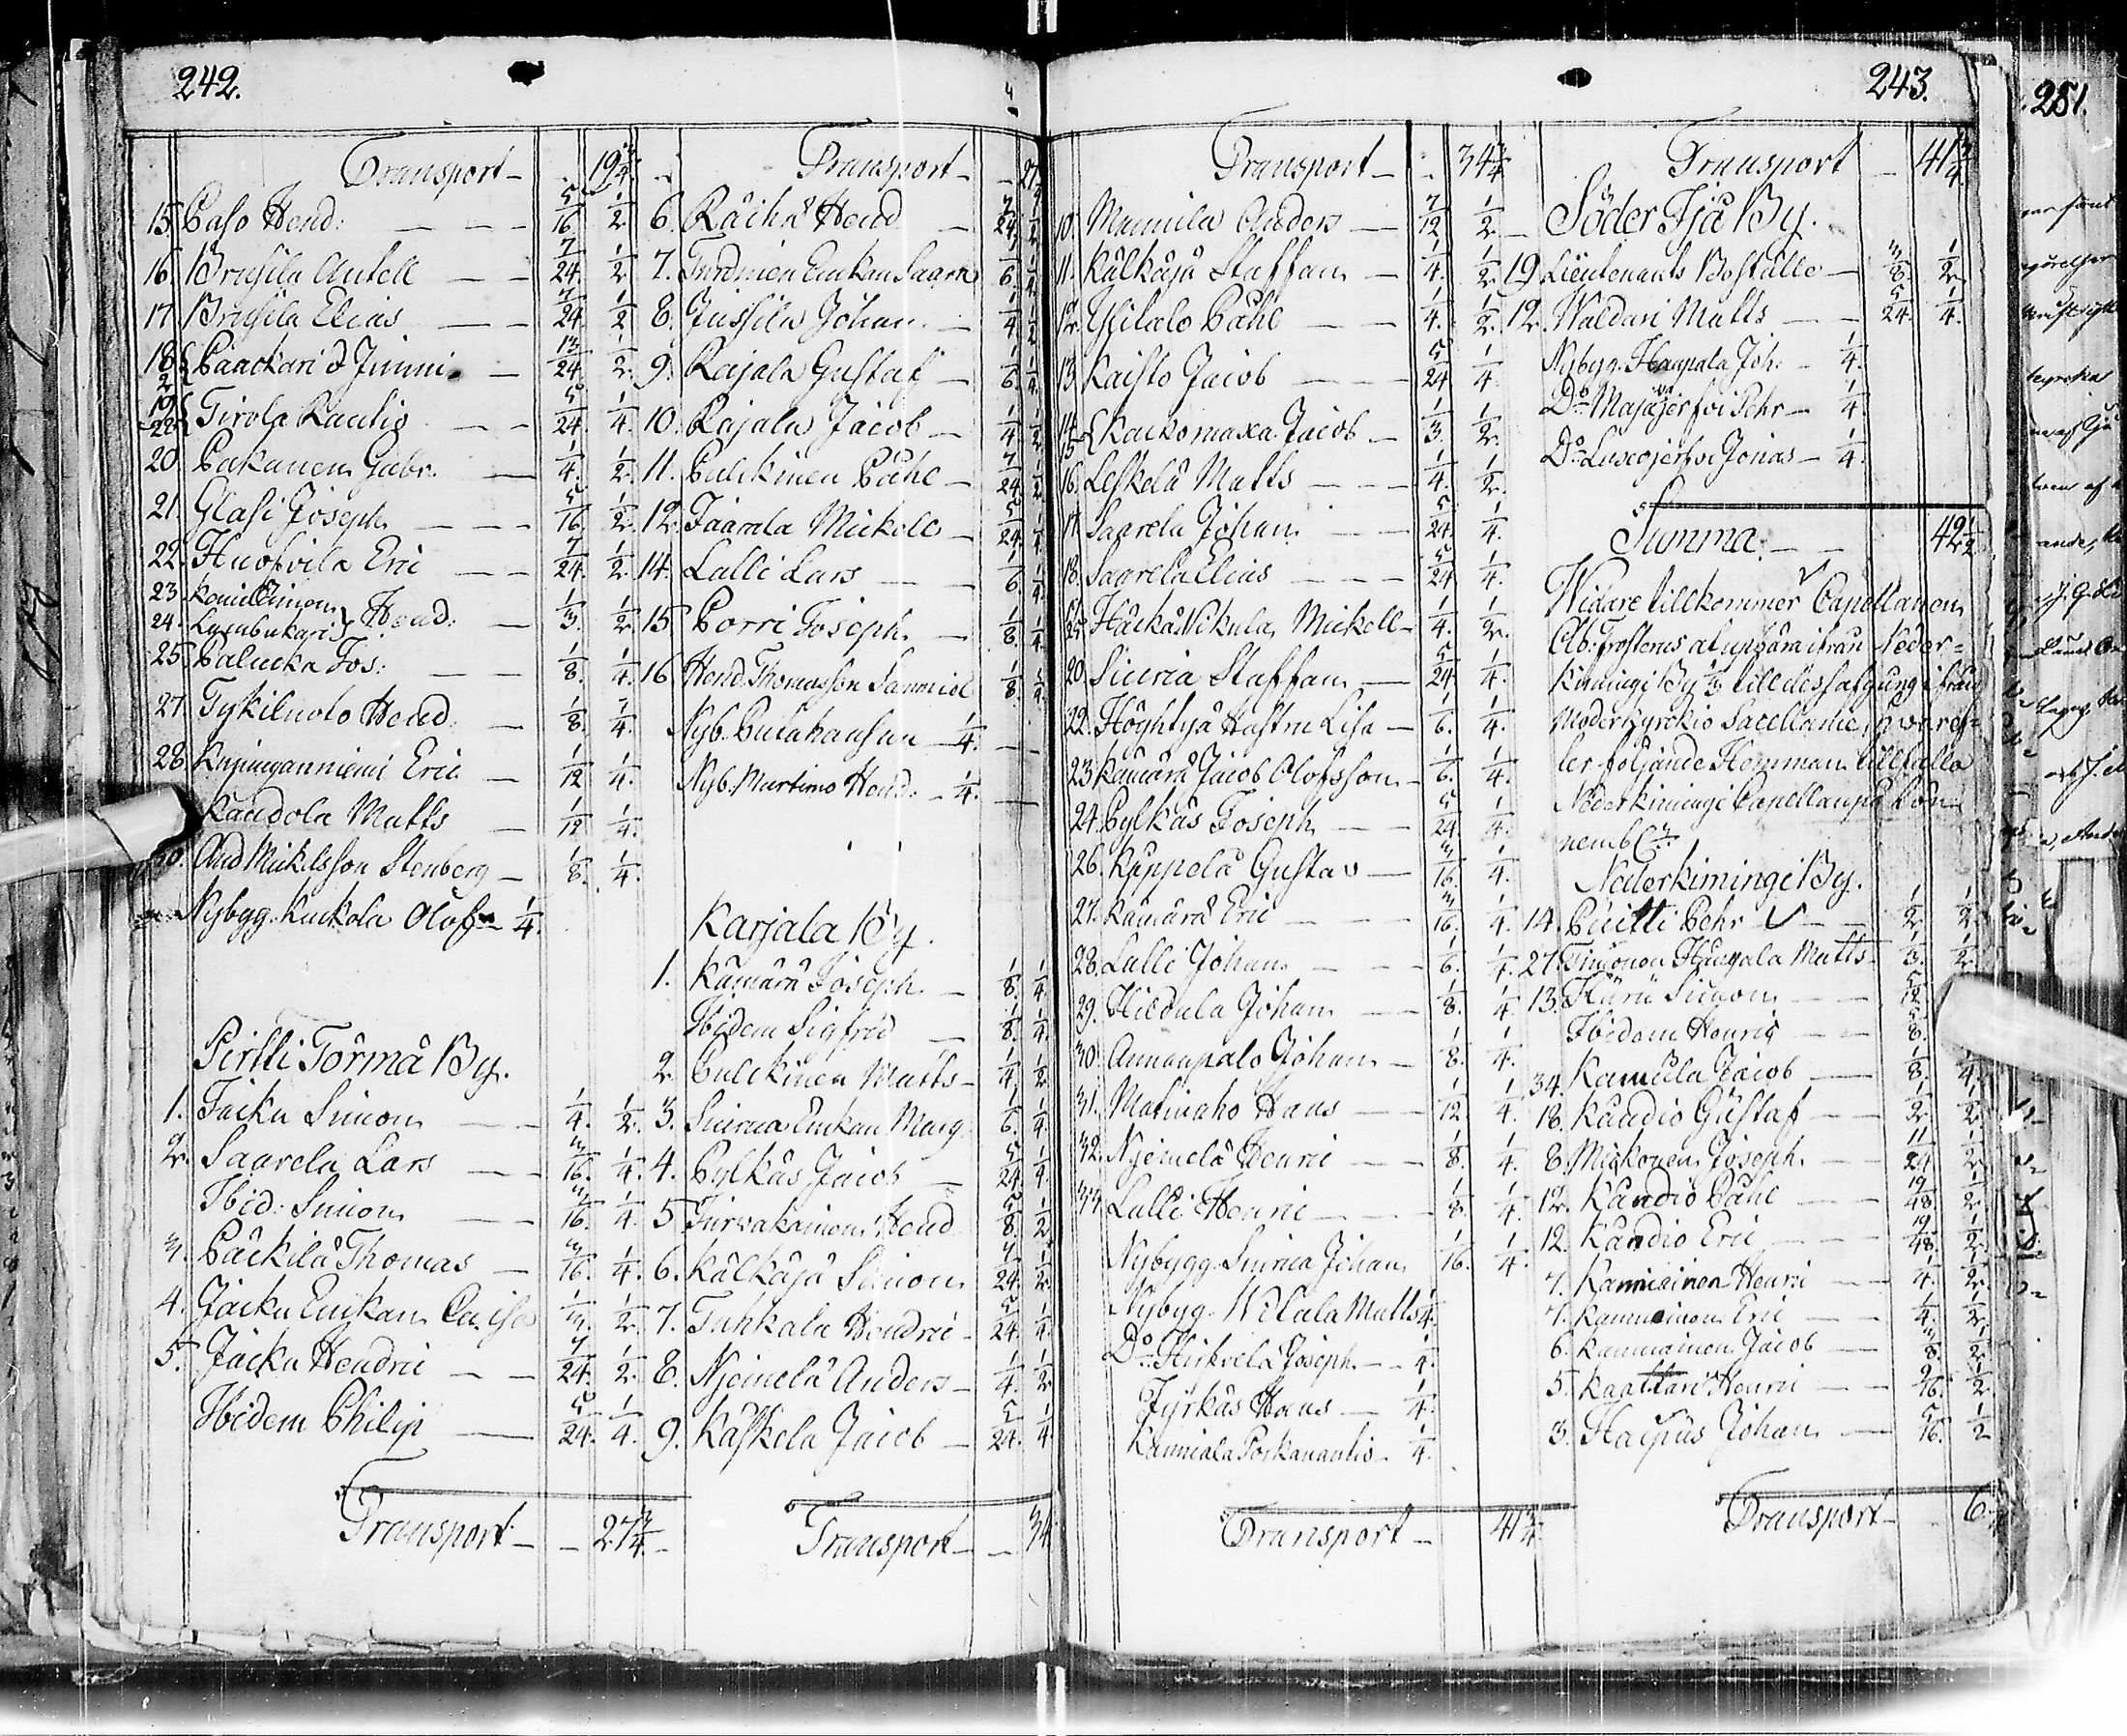 242.
Transport - 19 3/4.
15. Paso Hend: 5/16. 1/2
16. Brusila Antell 7/24. 1/2
17. Brusila Elias 7/24. 1/2
18. Paackari & Junni 13/24 1/2.
19. Tirola Kaulio 5/24. 1/4.
20. Pakanen Gabr: 1/4. 1/2.
21. Glasi Joseph 5/16. 1/2.
22. Huofvila Eric 7/24. 1/2.
23. Simon
24. Hend: 1/3. 1/2.
25. Palucka Jos: 1/8. 1/4.
27. Tykiluoto Hend. 1/8. 1/4.
28. Kupunganniemi Eric 1/12 1/4.
Kandola Matts 1/12 1/4.
30. And Mickelsson Stenberg 1/8. 1/4.
Nybygg. Kuckola Olof 1/4.
Pirtti Törmä By.
1. Jacku Simon 1/4. 1/2.
2. Saarela Lars 3/16. 1/4.
Ibid: Simon 3/16. 1/4.
3. Päckilä Thomas 3/16. 1/4.
4. Jacku Enkan Caisa 1/3. 1/2.
5. Jacku Hendric 7/24. 1/2.
Ibidem Philip 5/24. 1/4.
Transport - 27 3/4.
Transport - 27
6. Räihä Hend 7/24
7. Enkan Saara 1/6 1/4
8. Jussila Johan 1/4 1/2
9. Rajala Gustaf 1/6. 1/4
10. Rajala Jacob 1/4 1/2
11. Pulckinen Påhl 7/24 1/2
12. Jaarala Mickell 5/24 1/4
14. Lalli Lars 1/6 1/4
15. Porri Joseph 1/8. 1/4
16. Hend. Thomasson Sammiel 1/8. 1/4
Nyb. 1/4.
Nyb. Martimo Hend. 1/4.
Karjala By.
1. Kämärä Joseph 1/8. 1/4
Ibidem Sigfrid 1/8. 1/4
2. Pulckinen Matts 1/4. 1/2
3. Siurua Enkan Marg. 1/6. 1/4
4. Pylkäs Jacob 5/24. 1/4
5. Turvakainen Hend 5/8. 1/2
6. Kälkäjä Simon 7/24. 1/2
7. Tuhkala Hendric 5/24. 1/4
8. Njemelä Anders 1/4. 1/2
9. Käskela Jacob 5/24. 1/4
Transport - 34
243.
Transport - 34 3/4
10. Mannila Anders 7/12 1/2
11. Kälkäjä Staffan 1/4. 1/2
12. Ylitalo Påhl 1/4. 1/2.
13. Kaisto Jacob 5/24 1/4
14 15 Kackomaxa Jacob 1/3. 1/2.
16. Leskelä Matts 1/4. 1/2.
17. Saarela Johan 5/24. 1/4.
18. Saarela Elias 5/24 1/4.
Häckä Nikula Mickell 1/4. 1/2.
20. Siuria Staffan 5/24 1/4.
22. Höyhtyä Hustru Lisa 1/6. 1/4.
23. Kämärä Jacob Olofsson 1/6. 1/4.
24. Pylkäs Joseph 5/24. 1/4.
26. Käppelä Gustav 3/16. 1/4.
27. Kämärä Eric 3/16. 1/4.
28. Lalli Johan 1/6. 1/4.
29. Hildula Johan 1/8. 1/4
30. Annanpalo Johan 1/8. 1/4.
31. Matinaho Hans 1/12 1/4.
32. Njemelä Henric 1/8. 1/4.
33 Lalli Henric 1/8. 1/4.
Nybygg. Siurua Johan 1/16. 1/4.
Nybyg. Witala Matts 1/4.
Do Hirfvelä Joseph 1/4.
Jyrkäs Hans 1/4.
1/4.
Transport - 41 3/4.
Transport - 41 3/4.
Söder Ijå By.
19 Lieutenants Boställe 3/8. 1/2
12. Waldari Matts 5/24. 1/4.
Nybyg. Haapala Joh: 1/4.
Do Majajerfvi Pehr 1/4.
Do Jonas 1/4.
Summa 42 1/2
Widare tillkommer Capellanen
Neder=
Kimingi By till dess
Moderkyrckio Sacellanie,
ler följande Hemman tillfalla
Nederkimingi
Nederkimingi By.
14. Puitti Pehr 1/2 1/2
27. Matts 1/3. 1/2
13. Simon 5/12
Ibidem Henric 5/8.
34. Kamula Jacob 1/8. 1/4
18. Kändiö Gustaf 1/2. 1/2
8. Mickonen Joseph 11/24. 1/2
12. Kändiö Påhl 19/48. 1/2
12. Kändiö Eric 19/48. 1/2
7. Kanniainen Henric 1/4. 1/2.
7. Kanniainen Eric 1/4. 1/2
6. Kanniainen Jacob 3/8. 1/2
5. Kaattari Henric 9/16. 1/2
3. Haipus Johan 5/16. 1/2
Transport - 6
251.